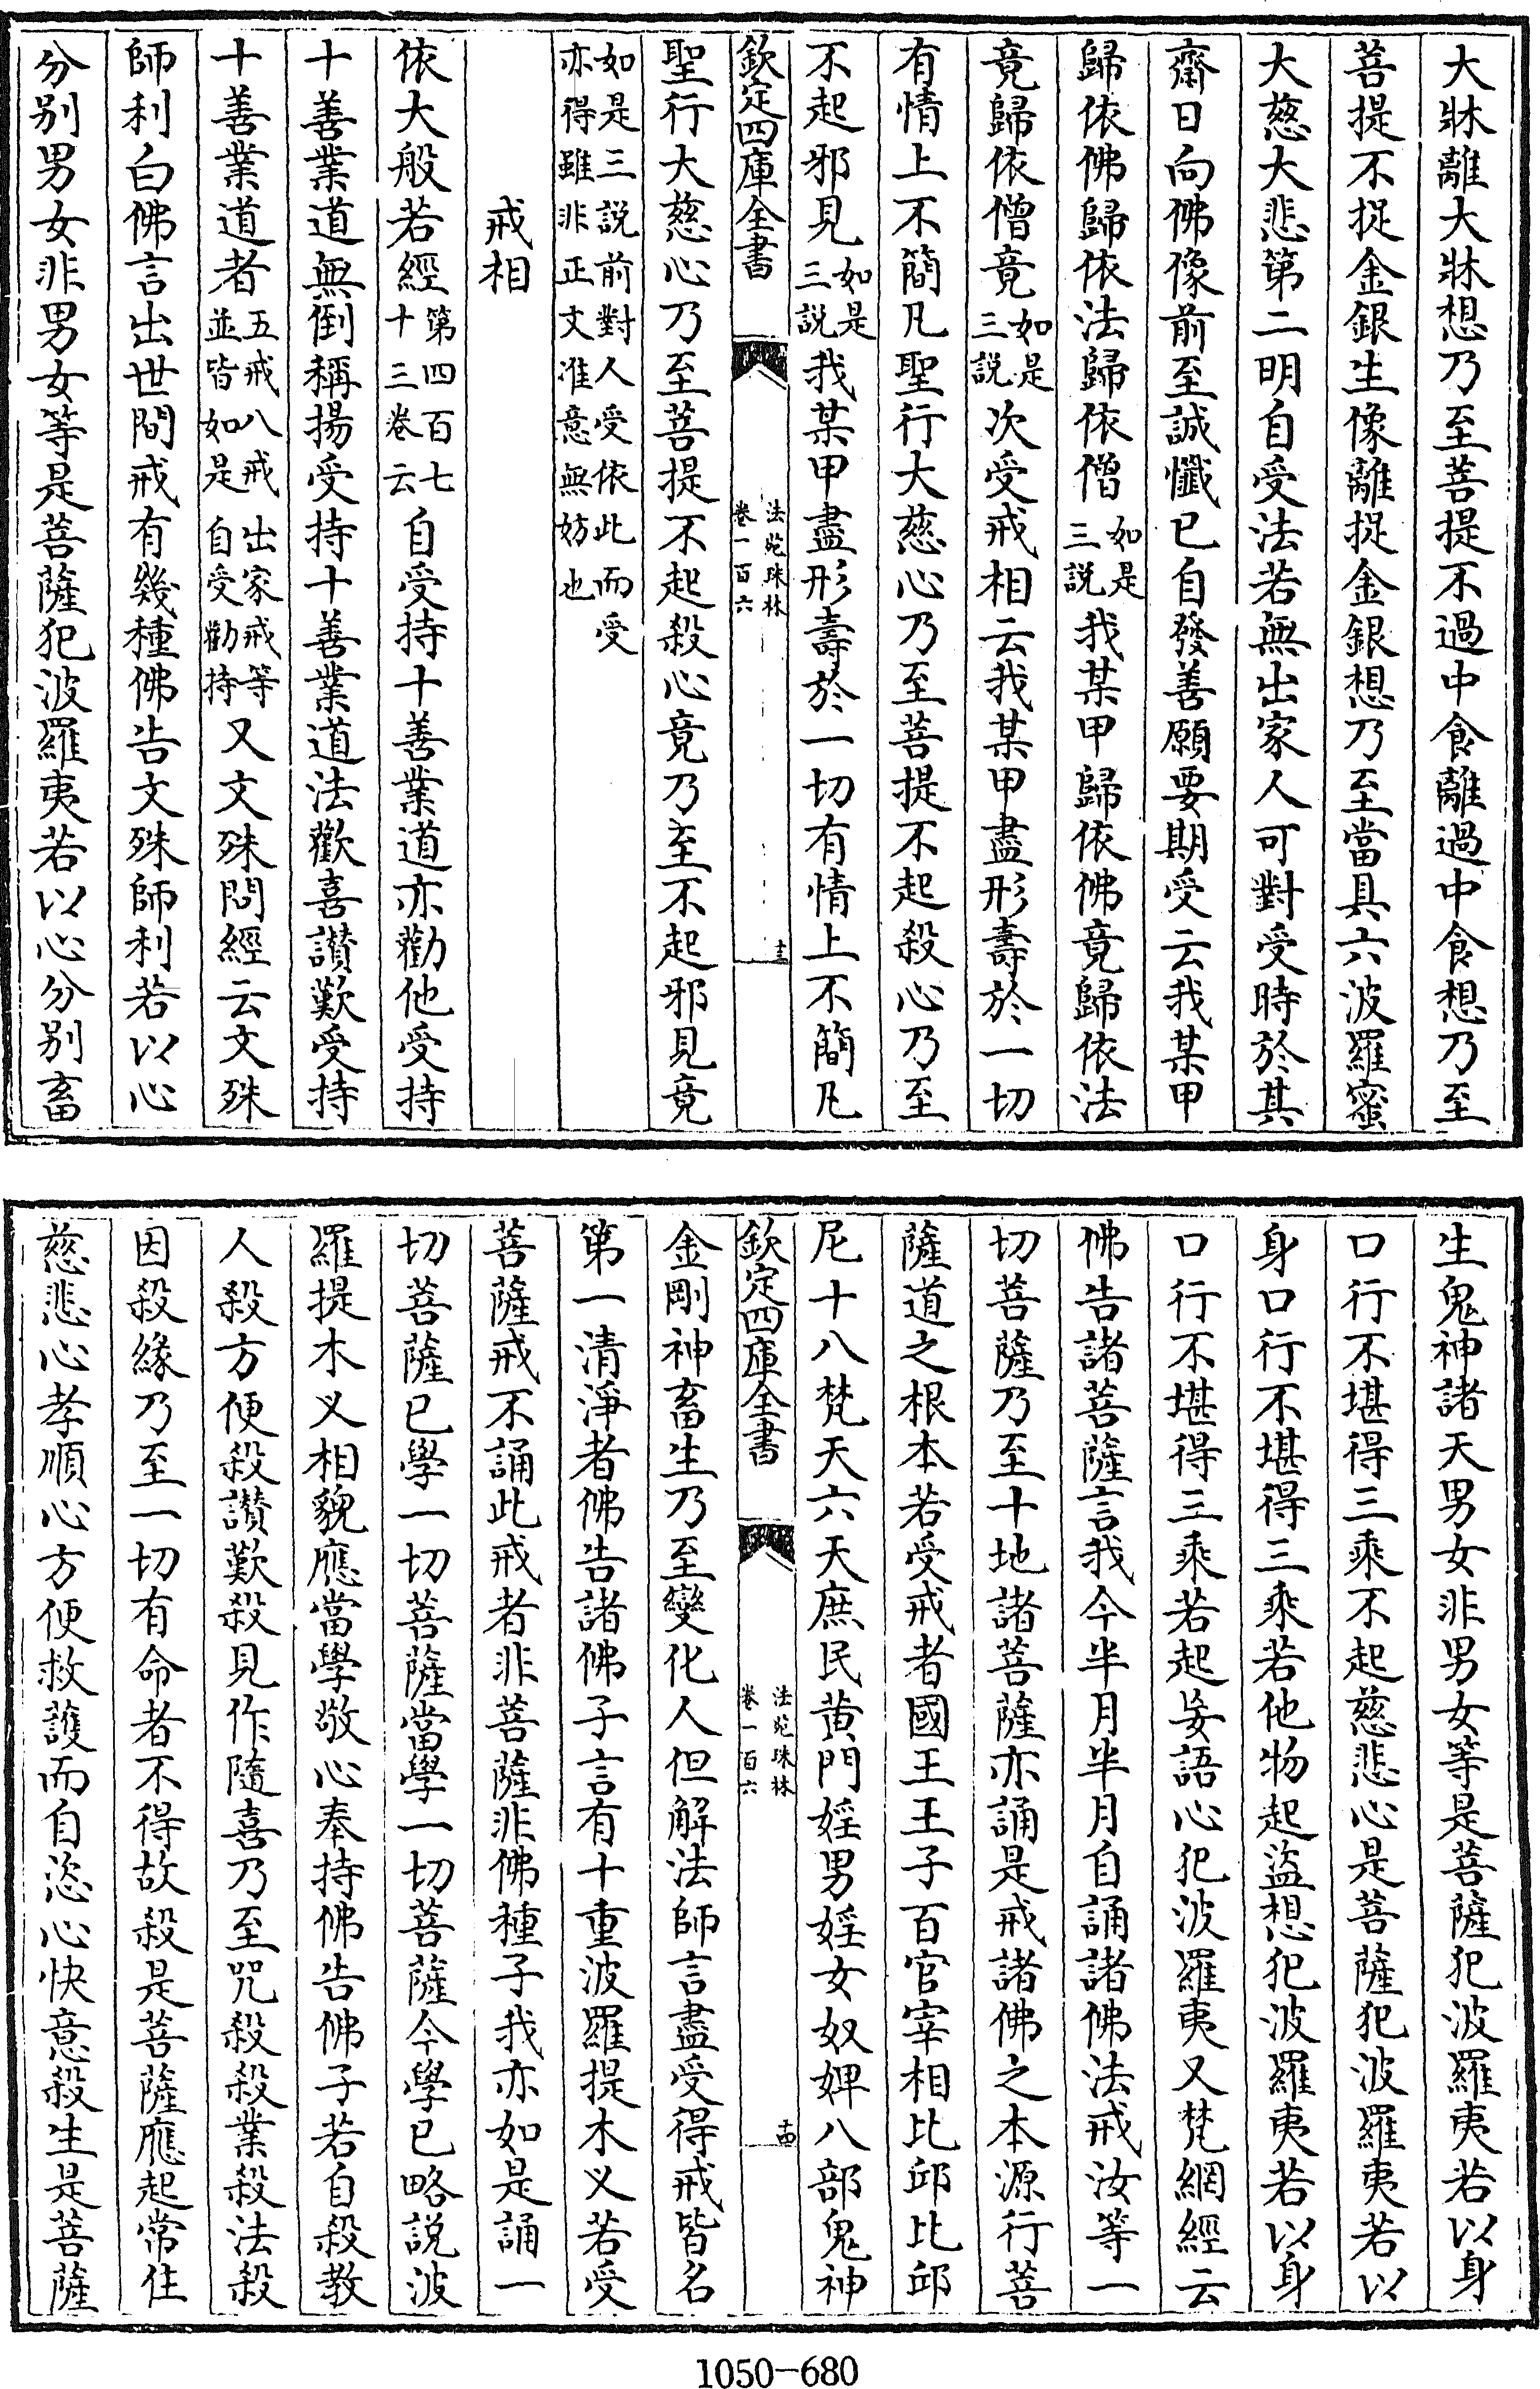 大牀離大牀想乃至菩提不過中食離過中食想乃至
菩提不捉金銀生像離捉金銀想乃至當具六波羅蜜
大慈大悲第二明自受法若無出家人可對受時於其
齋日向佛像前至誠懺已自發善願要期受云我某甲
歸依佛歸依法歸依僧如是三説我某甲歸依佛竟歸依法
竟歸依僧竟如是三説次受戒相云我某甲盡形壽於一切
有情上不簡凡聖行大慈心乃至菩提不起殺心乃至
不起邪見如是三説我某甲盡形壽於一切有情上不簡凡
欽定四庫全書
法苑珠林
卷一百六
十三
聖行大慈心乃至菩提不起殺心竟乃至不起邪見竟
如是三説前對人受依此而受
亦得雖非正文准意無妨也
戒相
依大般若經第四百七十三卷云自受持十善業道亦勸他受持
十善業道無倒稱揚受持十善業道法歡喜讃歎受持
十善業道者五戒八戒出家戒等並皆如是自受勸持又文殊問經云文殊
師利白佛言出世間戒有幾種佛告文殊師利若以心
分别男女非男女等是菩薩犯波羅夷若以心分别畜
生鬼神諸天男女非男女等是菩薩犯波羅夷若以身
口行不堪得三乘不起慈悲心是菩薩犯波羅夷若以
身口行不堪得三乘若他物起盜想犯波羅夷若以身
口行不堪得三乘若起妄語心犯波羅夷又梵網經云
佛告諸菩薩言我今半月半月自誦諸佛法戒汝等一
切菩薩乃至十地諸菩薩亦誦是戒諸佛之本源行菩
薩道之根本若受戒者國王王子百官宰相比邱比邱
尼十八梵天六天庶民黄門婬男婬女奴婢八部鬼神
欽定四庫全書
法苑珠林
卷一百六
十四
金剛神畜生乃至變化人但解法師言盡受得戒皆名
第一清淨者佛告諸佛子言有十重波羅提木义若受
菩薩戒不誦此戒者非菩薩非佛種子我亦如是誦一
切菩薩已學一切菩薩當學一切菩薩今學已略説波
羅提木义相貌應當學敬心奉持佛告佛子若自殺教
人殺方便殺讃歎殺見作隨喜乃至咒殺殺業殺法殺
因殺緣乃至一切有命者不得故殺是菩薩應起常住
慈悲心孝順心方便救護而自恣心快意殺生是菩薩
1050-680